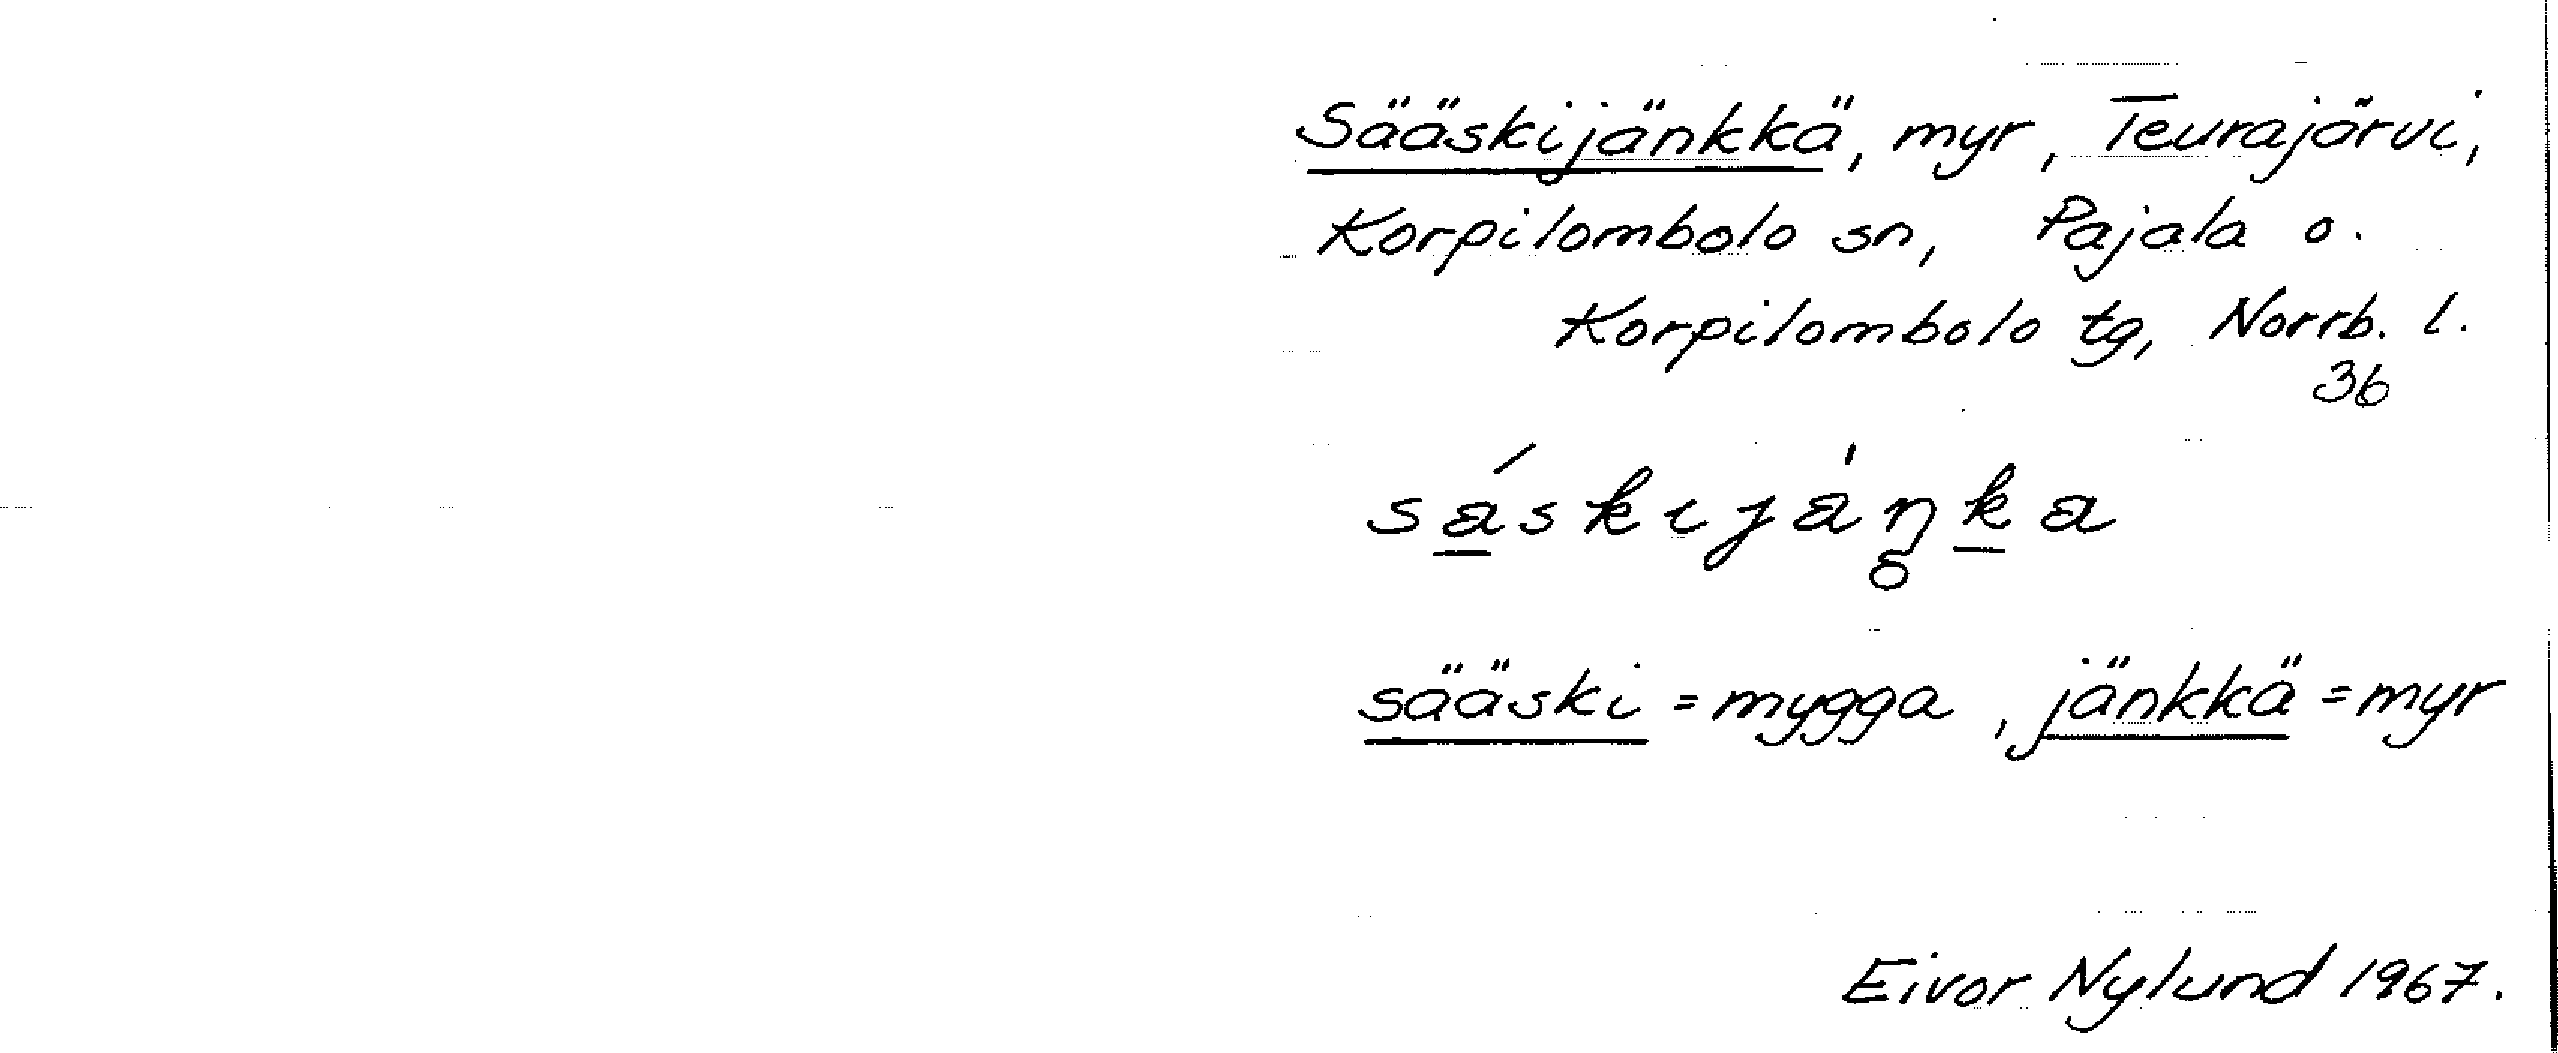 Sääskijänkkä, myr, Teurajärvi,
Korpilombolo sn, Pajala o.
Korpilombolo tg, Norrb. l.
36
sääski = mygga, jänkkä = myr
Eivor Nylund 1967.